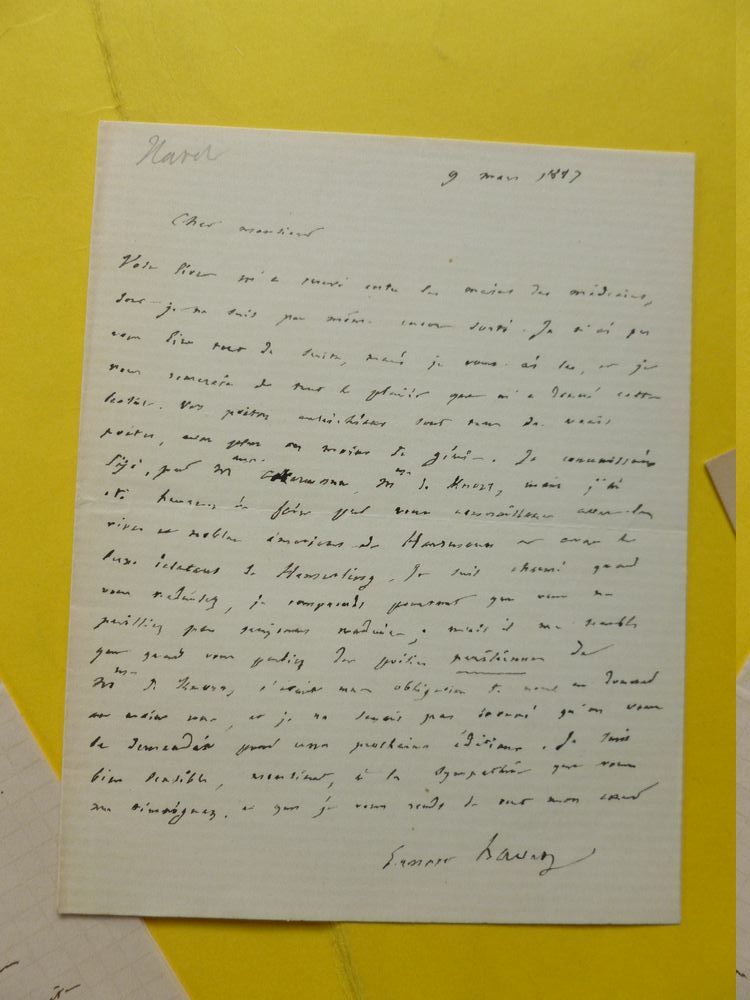 Havet
9 mars 1887
Cher monsieur
Votre livre m'a trouvé entre les mains des médecins,
dont je ne suis pas même encore sorti. Je n'ai pu
vous lire tout de suite, mais je vous ai lu, et je
vous remercie de tout le plaisir que m'a donné cette
lecture. Vos poètes autrichiens sont tous de vrais
poètes, avec plus ou moins de génie. Je connaissais
déjà, par Mme Mme de Knorr, mais j'ai
été heureux de faire par vous connaissance avec les
vives et nobles émotions de Hartmann et avec le
luxe éclatant de Hamerling. Je suis charmé quand
vous traduisez, je comprends pourtant que vous ne
puissiez pas toujours traduire; mais il me semble
que quand vous parliez des poésies parisiennes de
Mme de Knorr, c'était une obligation de nous en donner
au moins une, et je ne serais pas étonné qu'on vous
le demandât pour une prochaine édition. Je suis
bien sensible, monsieur, à la sympathie que vous
me témoignez, et que je vous rends de tout mon cœur
Ernest Havet